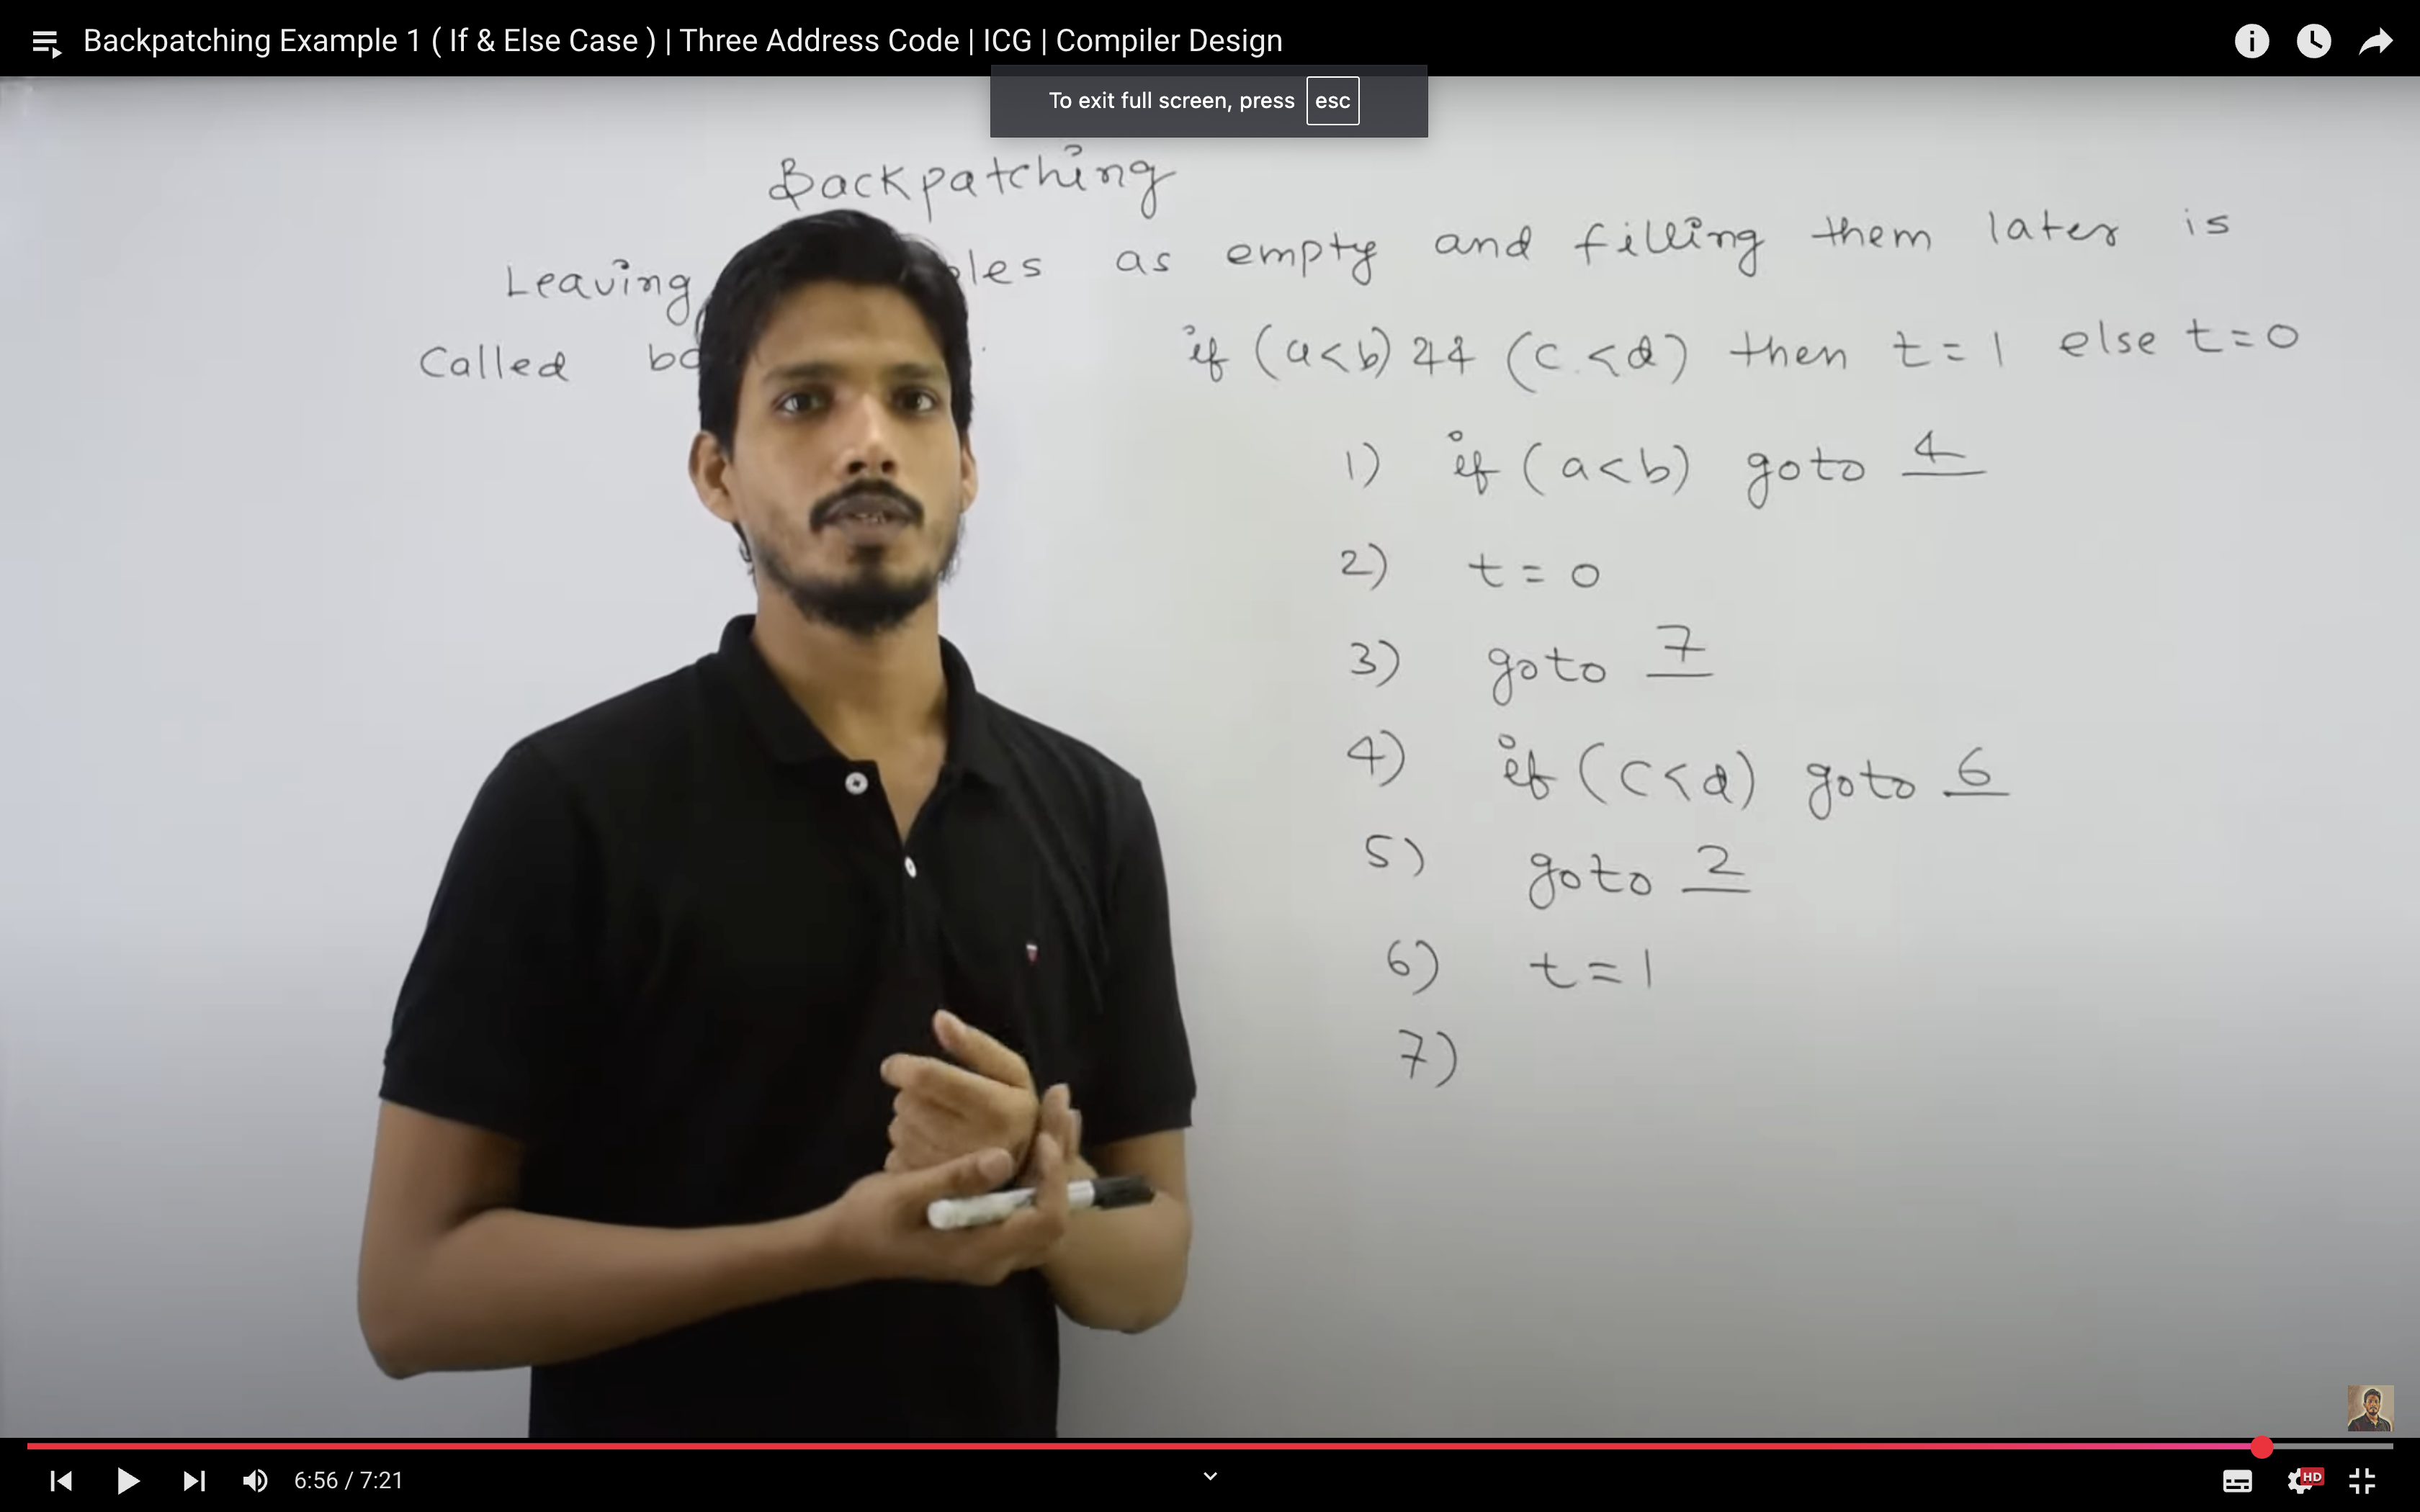 Backpatching Example 1 ( If & Else Case ) | Three Address Code | ICG | Compiler Design
To exit full screen, press esc
Backpatching
Leaving as empty and filling them later is
Called
if (a<b) && (c<d) then t=1 else t=0
1) if (a<b) goto 4
2) t=0
3) goto 7
4) if (c<d) goto 6
5) goto 2
6) t=1
7)
6:56 / 7:21
HD